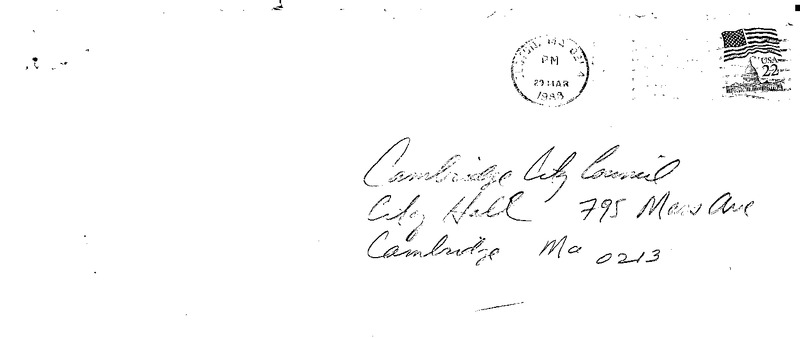 PM
29 MAR
1988
USA
22
Cambridge City Council
City Hall 795 Mass Ave
Cambridge Ma 0213